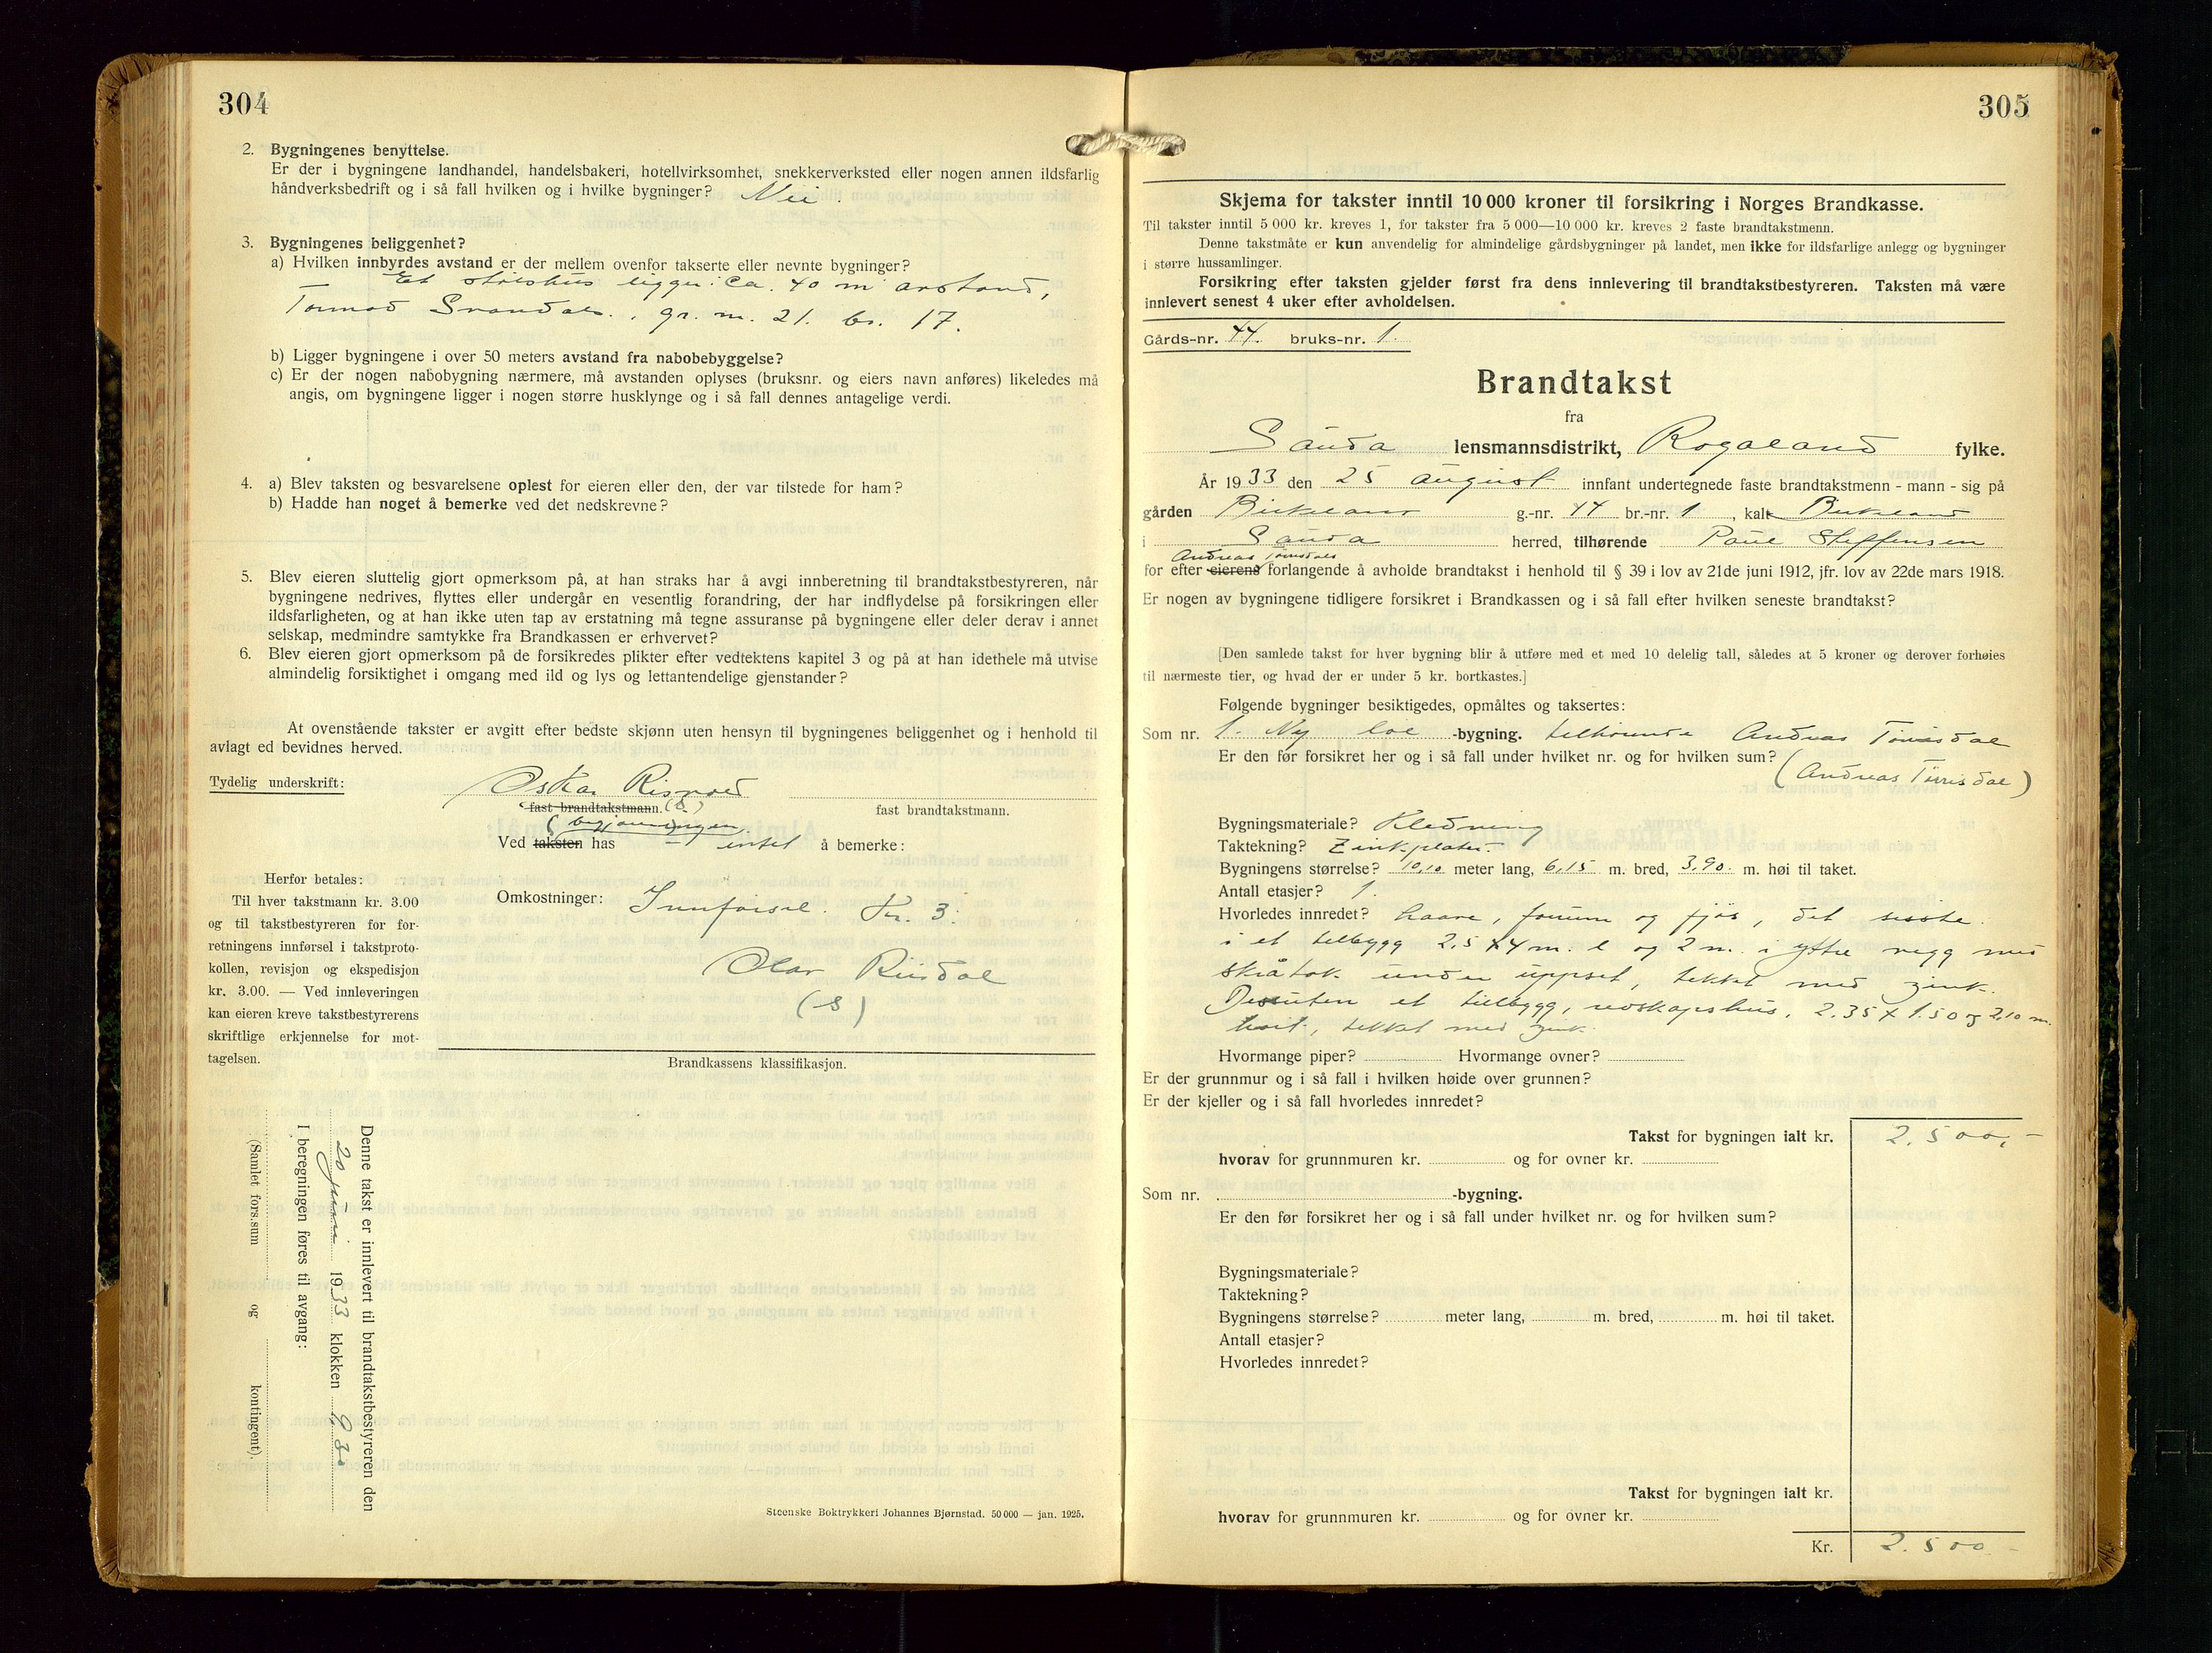 304
2. Bygningenes benyttelse.
Er der i bygningene landhandel, handelsbakeri, hotellvirksomhet, snekkerverksted eller nogen annen ildsfarlig
håndverksbedrift og i så fall hvilken og i hvilke bygninger? Nei.
3. Bygningenes beliggenhet?
a) Hvilken innbyrdes avstand er der mellem ovenfor takserte eller nevnte bygninger?
Et stølshus ligger ca. 40 m avstand,
gr. nr. 21. br. 17.
b) Ligger bygningene i over 50 meters avstand fra nabobebyggelse?
c) Er der nogen nabobygning nærmere, må avstanden oplyses (bruksnr. og eiers navn anføres) likeledes må
angis, om bygningene ligger i nogen større husklynge og i så fall dennes antagelige verdi.
4. a) Blev taksten og besvarelsene oplest for eieren eller den, der var tilstede for ham?
b) Hadde han noget å bemerke ved det nedskrevne?
5. Blev eieren sluttelig gjort opmerksom på, at han straks har å avgi innberetning til brandtakstbestyreren, når
bygningene nedrives, flyttes eller undergår en vesentlig forandring, der har indflydelse på forsikringen eller
ildsfarligheten, og at han ikke uten tap av erstatning må tegne assuranse på bygningene eller deler derav i annet
selskap, medmindre samtykke fra Brandkassen er erhvervet?
6. Blev eieren gjort opmerksom på de forsikredes plikter efter vedtektens kapitel 3 og på at han idethele må utvise
almindelig forsiktighet i omgang med ild og lys og lettantendelige gjenstander?
At ovenstående takster er avgitt efter bedste skjønn uten hensyn til bygningenes beliggenhet og i henhold til
avlagt ed bevidnes herved.
Tydelig underskrift: Oskar Risvold
fast brandtakstmann. (S) fast brandtakstmann.
Ved taksten has intet å bemerke:
Herfor betales:
Til hver takstmann kr. 3.00
og til takstbestyreren for for-
retningens innførsel i takstproto-
kollen, revisjon og ekspedisjon
kr. 3.00. — Ved innleveringen
kan eieren kreve takstbestyrerens
skriftlige erkjennelse for mot-
tagelsen.
Omkostninger: Innførsel. Kr. 3.
Olav Risdal
(S)
Brandkassens klassifikasjon.
Denne takst er innlevert til brandtakstbestyreren den
20 1933 klokken
I beregningen føres til avgang:
(Samlet fors.sum og kontingent).
Steenske Boktrykkeri Johannes Bjørnstad. 50 000 — jan. 1925.
305
Skjema for takster inntil 10 000 kroner til forsikring i Norges Brandkasse.
Til takster inntil 5 000 kr. kreves 1, for takster fra 5 000—10 000 kr. kreves 2 faste brandtakstmenn.
Denne takstmåte er kun anvendelig for almindelige gårdsbygninger på landet, men ikke for ildsfarlige anlegg og bygninger
i større hussamlinger.
Forsikring efter taksten gjelder først fra dens innlevering til brandtakstbestyreren. Taksten må være
innlevert senest 4 uker efter avholdelsen.
Gårds-nr. 44. bruks-nr. 1.
Brandtakst
fra
Sauda lensmannsdistrikt, Rogaland fylke.
År 1933 den 25 august innfant undertegnede faste brandtakstmenn - mann - sig på
gården Birkeland g.-nr. 44 br.-nr. 1, kalt Birkeland
i Sauda herred, tilhørende Paul Steffensen
Andreas Tørrisdal
for efter eierens forlangende å avholde brandtakst i henhold til § 39 i lov av 21de juni 1912, jfr. lov av 22de mars 1918.
Er nogen av bygningene tidligere forsikret i Brandkassen og i så fall efter hvilken seneste brandtakst?
[Den samlede takst for hver bygning blir å utføre med et med 10 delelig tall, således at 5 kroner og derover forhøies
til nærmeste tier, og hvad der er under 5 kr. bortkastes.]
Følgende bygninger besiktigedes, opmåltes og taksertes:
Som nr. 1. Ny løe -bygning. tilhørende Andreas Tørrisdal
Er den før forsikret her og i så fall under hvilket nr. og for hvilken sum? (Andreas Tørrisdal)
Bygningsmateriale? Kledning
Taktekning? Zinkplater.
Bygningens størrelse? 10,10 meter lang, 6,15 m. bred, 3,90 m. høi til taket.
Antall etasjer? 1.
Hvorledes innredet? Laave, forrum og fjøs, det sisste
i et tilbygg 2.5 x 4 m. l og 2 m. i yttre vegg med
skråtak under uppset, tekket med zink.
Desuten et tilbygg, redskapshus. 2.35 x 1.50 og 2,10 m.
høit, tekket med zink.
Hvormange piper? Hvormange ovner?
Er der grunnmur og i så fall i hvilken høide over grunnen?
Er der kjeller og i så fall hvorledes innredet?
Takst for bygningen ialt kr. 2.500,-
hvorav for grunnmuren kr. og for ovner kr.
Som nr. -bygning.
Er den før forsikret her og i så fall under hvilket nr. og for hvilken sum?
Bygningsmateriale?
Taktekning?
Bygningens størrelse? meter lang, m. bred, m. høi til taket.
Antall etasjer?
Hvorledes innredet?
Takst for bygningen ialt kr.
hvorav for grunnmuren kr. og for ovner kr.
Kr. 2.500 -